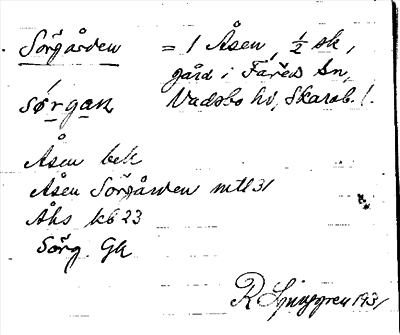 Sörgården = 1 Åsen, ½ sk,
gård i Fåreds Sn,
sørgan Vadsbo hd, Skarab. l.
Åsen bek
Åsen Sörgården mtl 31
Åhs kb 23
Sörg. Gk
R Ljunggren 1931